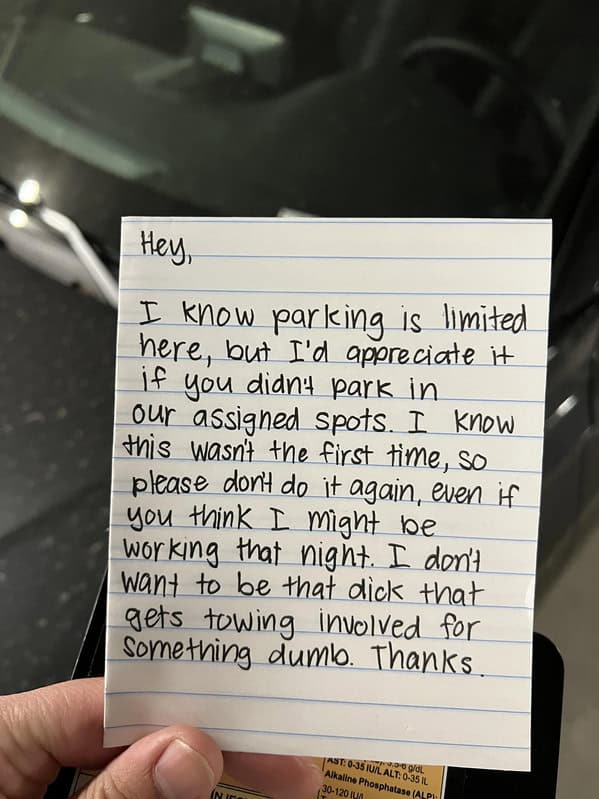 Hey,
I know parking is limited
here, but I'd appreciate it
if you didn't park in
our assigned spots. I know
this wasn't the first time, so
please don't do it again, even if
you think I might be
working that night. I don't
want to be that dick that
gets towing involved for
something dumb. Thanks.
AST: 0-35 IU/L ALT: 0-35 IL
Alkaline Phosphatase (ALP):
30-120 IU/l